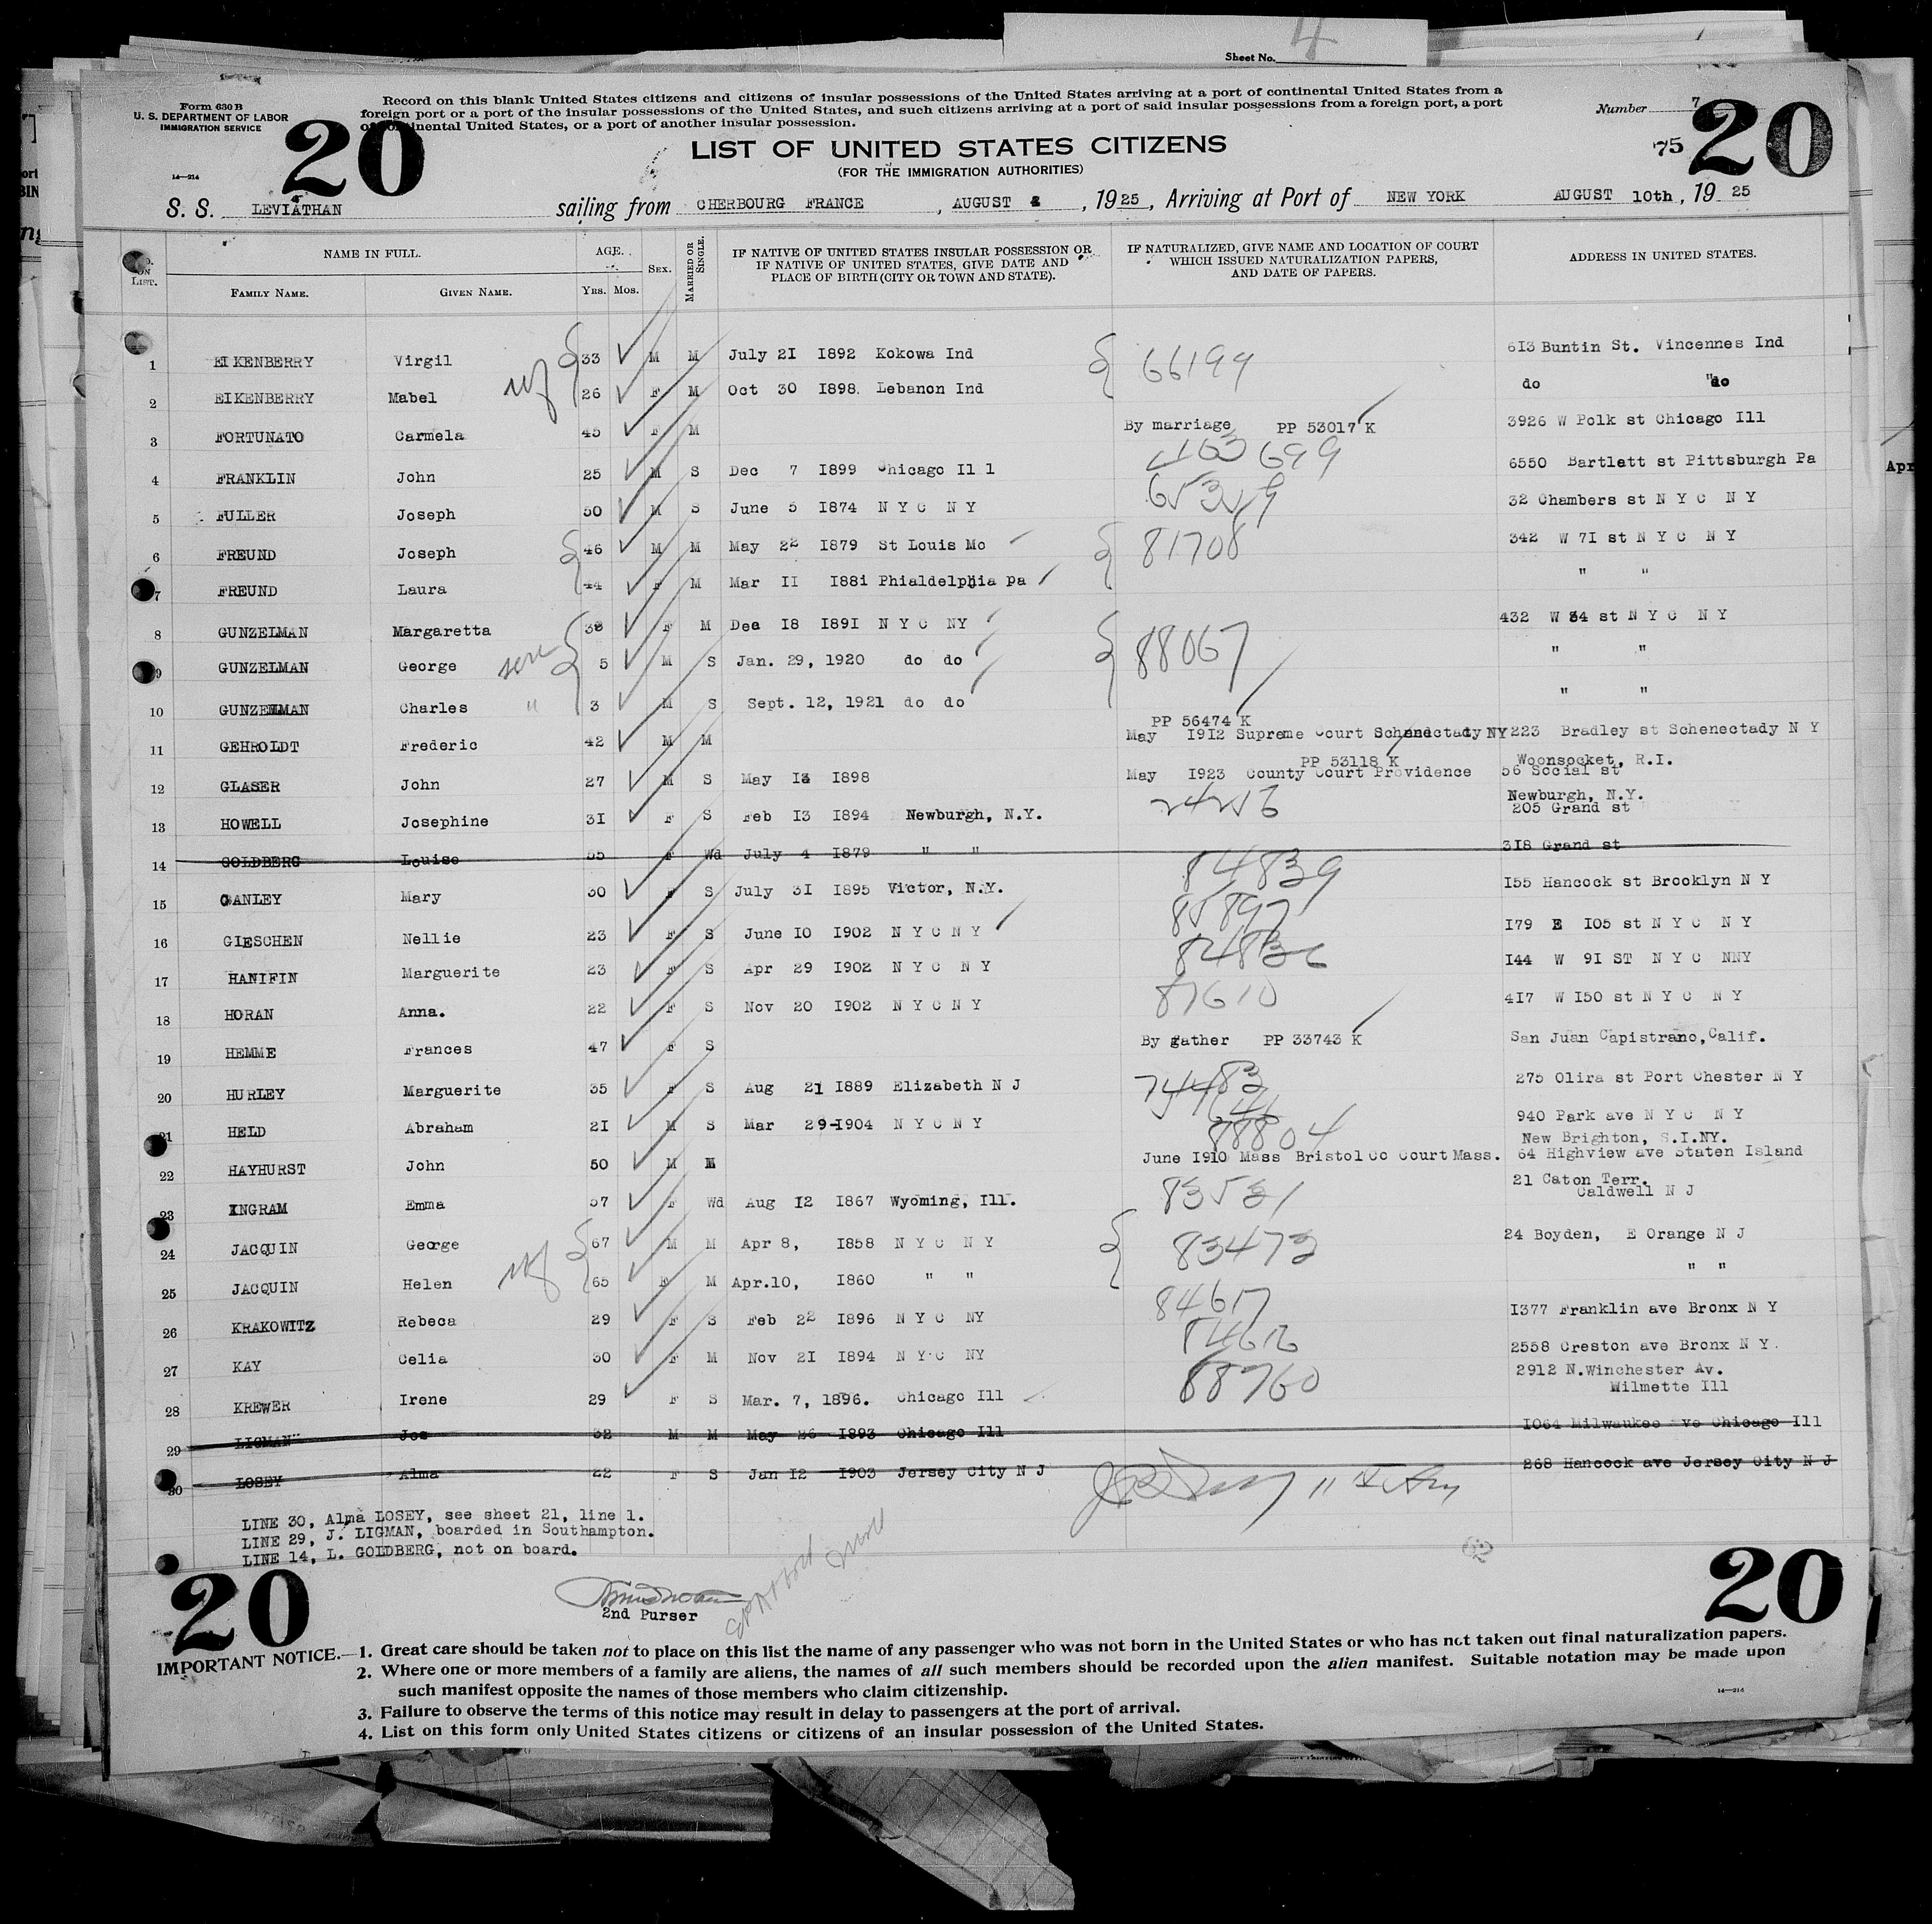 Sheet No. 4
Form 630 B
U. S. DEPARTMENT OF LABOR
IMMIGRATION SERVICE
14—214
20
Record on this blank United States citizens and citizens of insular possessions of the United States arriving at a port of continental United States from a
foreign port or a port of the insular possessions of the United States, and such citizens arriving at a port of said insular possessions from a foreign port, a port
of continental United States, or a port of another insular possession.
Number 7
75 20
LIST OF UNITED STATES CITIZENS
(FOR THE IMMIGRATION AUTHORITIES)
S. S. LEVIATHAN sailing from CHERBOURG FRANCE , AUGUST , 1925 , Arriving at Port of NEW YORK AUGUST 10th , 19 25
No. ON LIST. NAME IN FULL. FAMILY NAME. GIVEN NAME. AGE. YRS. MOS. SEX. MARRIED OR SINGLE. IF NATIVE OF UNITED STATES INSULAR POSSESSION OR IF NATIVE OF UNITED STATES, GIVE DATE AND PLACE OF BIRTH (CITY OR TOWN AND STATE). IF NATURALIZED, GIVE NAME AND LOCATION OF COURT WHICH ISSUED NATURALIZATION PAPERS, AND DATE OF PAPERS. ADDRESS IN UNITED STATES.
1 EIKENBERRY Virgil 33 M M July 2I I892 Kokowa Ind 66199 6I3 Buntin St. Vincennes Ind
2 EIKENBERRY Mabel 26 F M Oct 30 I898 Lebanon Ind do "do
3 FORTUNATO Carmela 45 F M By marriage PP 53017 K 3926 W Polk st Chicago Ill
4 FRANKLIN John 25 M S Dec 7 I899 Chicago Il l 103 699 6550 Bartlett st Pittsburgh Pa
5 FULLER Joseph 50 M S June 5 I874 N Y C N Y 32 Chambers st N Y C N Y
6 FREUND Joseph 46 M M May 22 I879 St Louis Mo 81708 342 W 7I st N Y C N Y
7 FREUND Laura 44 F M Mar II I88i Phialdelphia pa " "
8 GUNZELMAN Margaretta F M Dec I8 I89I N Y C NY 88067 432 W 34 st N Y C N Y
9 GUNZELMAN George 5 M S Jan. 29, 1920 do do " "
10 GUNZELMAN Charles " 3 M S Sept. 12, 1921 do do " "
PP 56474 K
11 GEHROLDT Frederic 42 M M May I9I2 Supreme Court Schenectady NY 223 Bradley st Schenectady N Y
PP 53118 K Woonsocket, R.I.
12 GLASER John 27 M S May I3 I898 May I923 County Court Providence 56 Social st
Newburgh, N.Y.
13 HOWELL Josephine 3I F S Feb I3 I894 Newburgh, N.Y. 205 Grand st
14 GOLDBERG Louise 55 F Wd July 4 I879 " " 3I8 Grand st
15 GANLEY Mary 30 F S July 3I I895 Victor, N.Y. 84839 I55 Hancock st Brooklyn N Y
16 GIESCHEN Nellie 23 F S June I0 I902 N Y C N Y 85897 I79 E I05 st N Y C N Y
17 HANIFIN Marguerite 23 F S Apr 29 I902 N Y C N Y 84836 I44 W 9I ST N Y C NNY
18 HORAN Anna. 22 F S Nov 20 I902 N Y C N Y 87610 4I7 W I50 st N Y C N Y
19 HEMME Frances 47 F S By gather PP 33743 K San Juan Capistrano, Calif.
20 HURLEY Marguerite 35 F S Aug 21 I889 Elizabeth N J 74483 275 Olira st Port Chester N Y
21 HELD Abraham 2I M S Mar 29-I904 N Y C N Y 88804 940 Park ave N Y C N Y
New Brighton, S.I.NY.
22 HAYHURST John 50 M M June I910 Mass Bristol Co Court Mass. 64 Highview ave Staten Island
21 Caton Terr.
23 INGRAM Emma 57 F Wd Aug I2 I867 Wyoming, Ill. 83531 Caldwell N J
24 JACQUIN George 67 M M Apr 8, I858 N Y C N Y 83473 24 Boyden, E Orange N J
25 JACQUIN Helen 65 F M Apr.10, I860 " " " "
26 KRAKOWITZ Rebeca 29 F S Feb 22 I896 N Y C NY 84617 I377 Franklin ave Bronx N Y
27 KAY Celia 30 F M Nov 2I I894 N Y C NY 84616 2558 Creston ave Bronx N Y.
2912 N.Winchester Av.
28 KREWER Irene 29 F S Mar. 7, 1896. Chicago Ill 88760 Wilmette Ill
29 LIGMAN Joe 32 M M May 26 I893 Chicago Ill I064 Milwaukee ve Chicago Ill
30 LOSEY Alma 22 F S Jan I2 I903 Jersey City N J 268 Hancock ave Jersey City N J
LINE 30, Alma LOSEY, see sheet 21, line 1.
LINE 29, J. LIGMAN, boarded in Southampton.
LINE 14, L. GOLDBERG, not on board.
62
20
2nd Purser
20
IMPORTANT NOTICE.—1. Great care should be taken not to place on this list the name of any passenger who was not born in the United States or who has not taken out final naturalization papers.
2. Where one or more members of a family are aliens, the names of all such members should be recorded upon the alien manifest. Suitable notation may be made upon
such manifest opposite the names of those members who claim citizenship.
3. Failure to observe the terms of this notice may result in delay to passengers at the port of arrival.
4. List on this form only United States citizens or citizens of an insular possession of the United States.
14—214
Apr